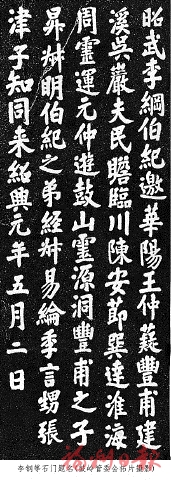 昭武李綱伯紀邀華陽王仲薿豐甫建
溪吳巖夫民瞻臨川陳安節巽達淮海
周靈運元仲遊鼓山靈源洞豐甫之子
昇叔明伯紀之弟經叔易綸季言甥張
津子知同來紹興元年五月二日
李钢等石门题名(鼓岭管委会拍片摄影)
福州日报